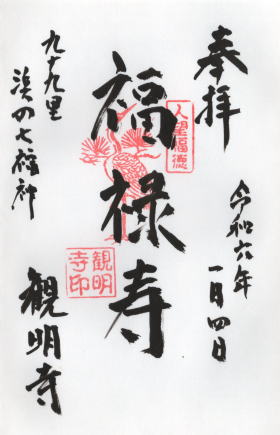 奉拝
令和六年
一月四日
人望福徳
福禄寿
観明
寺印
九十九里
浜の七福神
観明寺